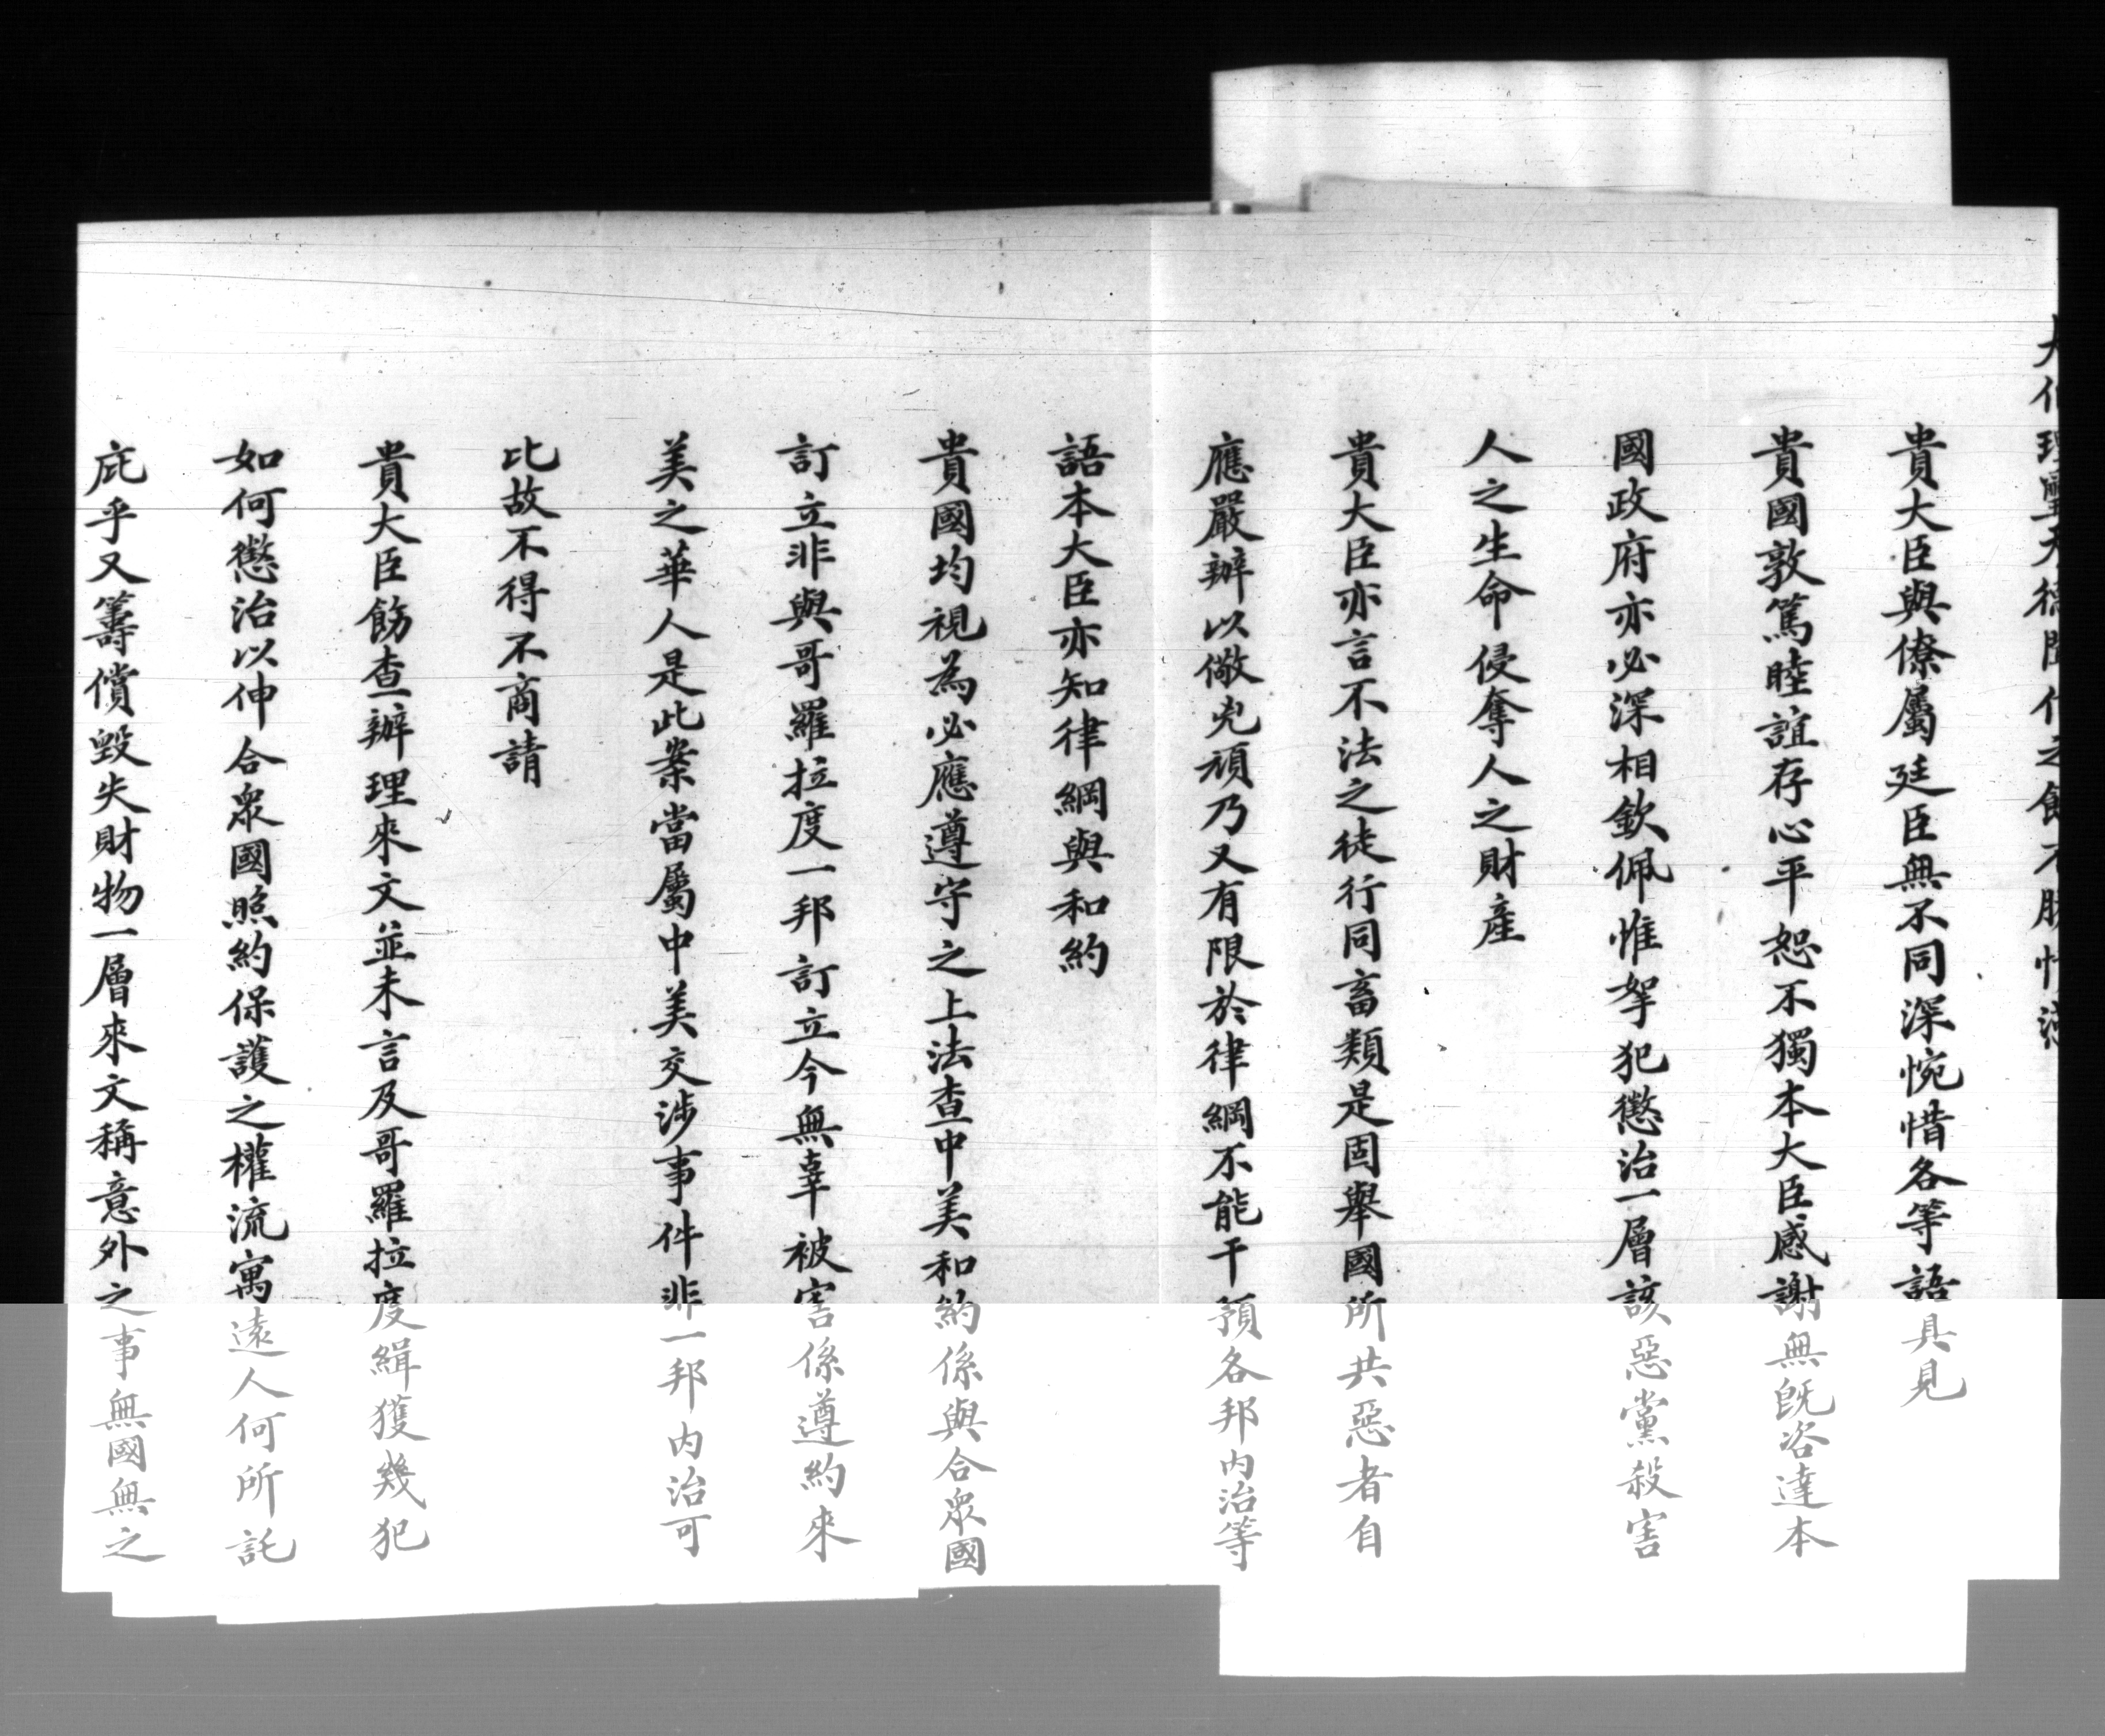 大伯理璽天德聞
貴大臣與僚屬廷臣無不同深惋惜各等語具見
貴國敦篤睦誼存心平恕不獨本大臣感謝無既咨達本
國政府亦必深相欽佩惟拏犯懲治一層該惡黨殺害
人之生命侵奪人之財產
貴大臣亦言不法之徒行同畜類是固舉國所共惡者自
應嚴辦以儆兇頑乃又有限於律綱不能干預各邦內治等
語本大臣亦知律綱與和約
貴國均視為必應遵守之上法查中美和約係與合眾國
訂立非與哥羅拉度一邦訂立今無辜被害係遵約來
美之華人是此案當屬中美交涉事件非一邦內治可
比故不得不商請
貴大臣飭查辦理來文並未言及哥羅拉度緝獲幾犯
如何懲治以伸合眾國照約保護之權流寓遠人何所託
庇乎又籌償毀失財物一層來文稱意外之事無國無之